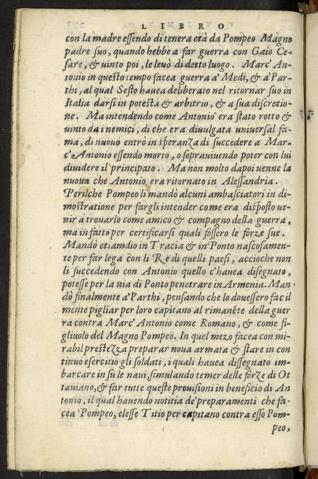 LIBRO
con la madre essendo di tenera età da Pompeo Magno
padre suo, quando hebbe a far guerra con Gaio Ce-
sare, & uinto poi, le leuò di detto luogo. Marc' An-
tonio in questo tempo facea guerra a' Medi, & a' Par-
thi, al qual Sesto hauea deliberato nel ritornar suo in
Italia darsi in potestà & arbitrio, & a sua discretio-
ne. Ma intendendo come Antonio era stato rotto &
uinto da i nemici, di che era diuulgata uniuersal fa-
ma, di nuouo entrò in speranza di succedere a Mar-
c' Antonio essendo morto, o soprauiuendo poter con lui
diuidere il principato. Ma non molto dapoi uenne la
nuoua che Antonio era ritornato in Alessandria.
Perilche Pompeo li mandò alcuni ambasciatori in di-
mostratione per fargli intender come era disposto ue-
nir a trouarlo come amico & compagno della guerra,
ma in fatto per certificarsi quali fossero le forze sue.
Mandò etiamdio in Tracia & in Ponto nascosamen-
te per far lega con li Re di quelli paesi, accioche non
li succedendo con Antonio quello c'hauea disegnato,
potesse per la via di Ponto penetrare in Armenia. Man
dò finalmente a' Parthi, pensando che lo douessero facil
mente pigliar per loro capitano al rimanēte della guer
ra contra Marc' Antonio come Romano, & come fi-
gliuolo del Magno Pompeo. In quel mezo facea con mi-
rabil prestezza preparar noua armata & stare in con
tinuo esercitio gli soldati, i quali hauea dissegnato im-
barcare in su le naui, simulando temer delle forze di Ot
tauiano, & far tutte queste prouisioni in beneficio di An
tonio, il qual hauendo notitia de' preparamenti che fa-
cea Pompeo, elesse Titio per capitano contra esso Pom-
peo,